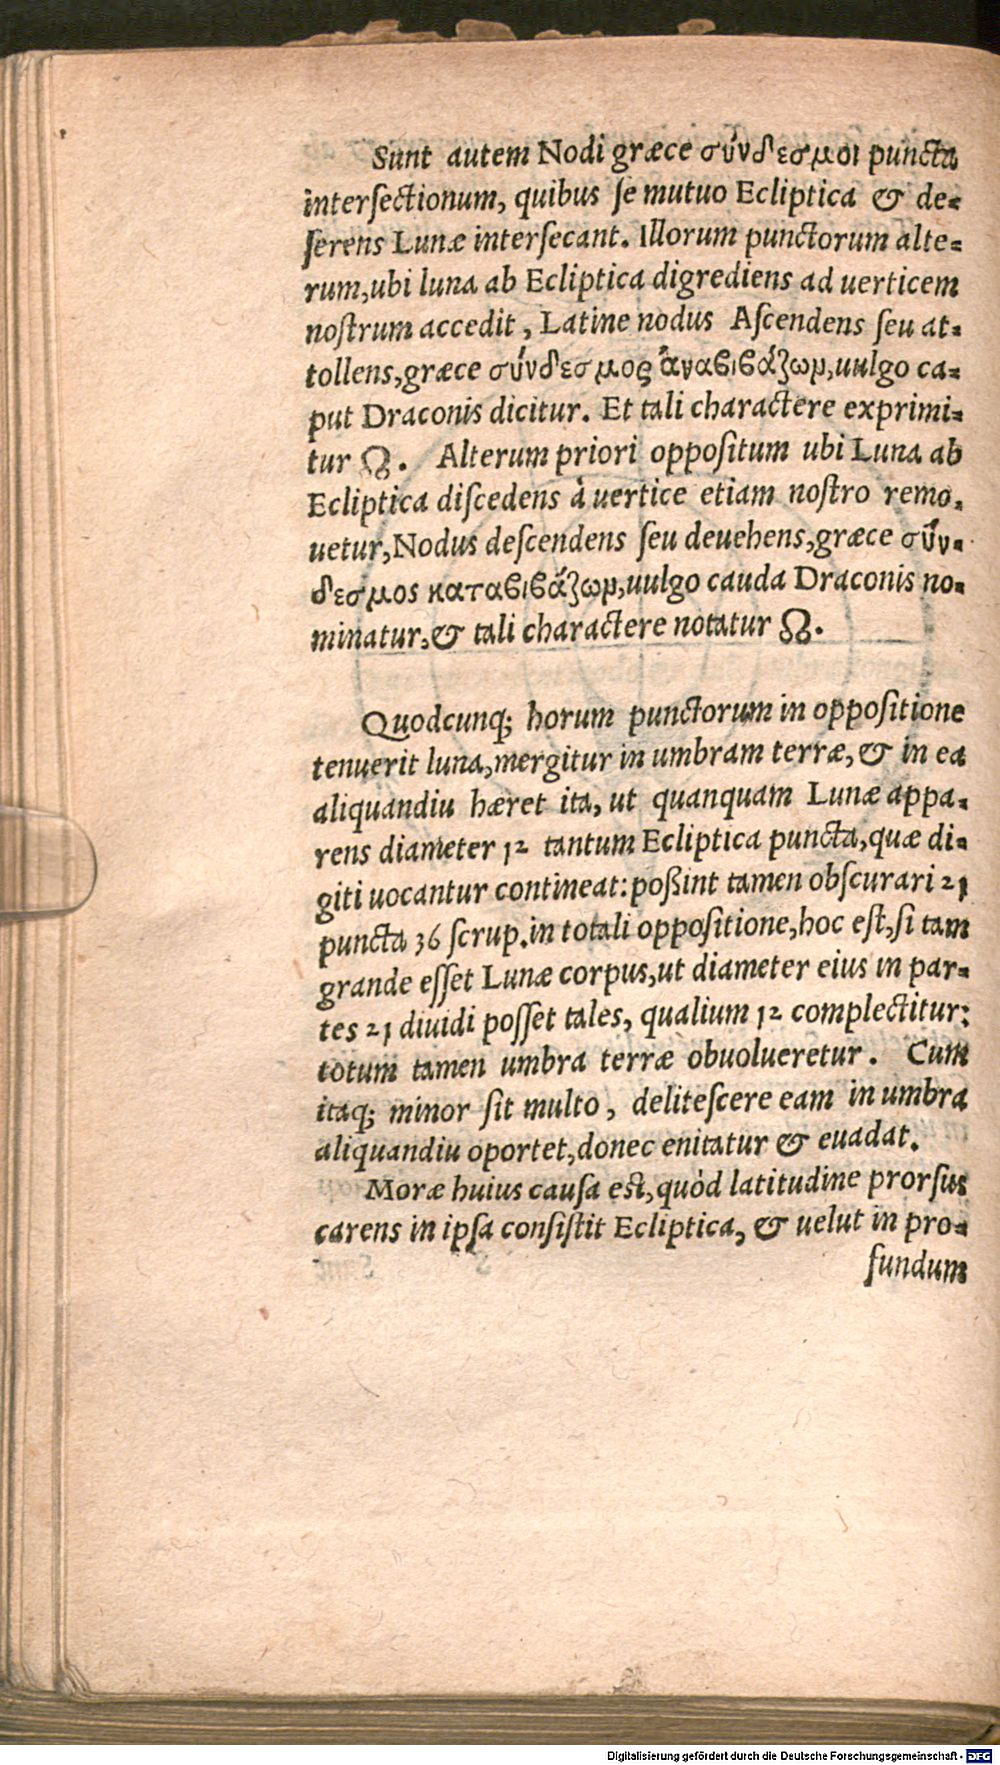 Sunt autem Nodi græce σύνδεσμοι puncta
interſectionum, quibus ſe mutuo Ecliptica & de-
ferens Lunæ interſecant. Illorum punctorum alte-
rum,ubi luna ab Ecliptica digrediens ad uerticem
noſtrum accedit, Latine nodus Aſcendens ſeu at-
tollens,græce σύνδεσμος ἀναβιβάζωμ,uulgo ca-
put Draconis dicitur. Et tali charactere exprimi-
tur ☊. Alterum priori oppoſitum ubi Luna ab
Ecliptica diſcedens à uertice etiam noſtro remo-
uetur,Nodus deſcendens ſeu deuehens,græce σύν-
δεσμος καταβιβάζωμ,uulgo cauda Draconis no-
minatur,& tali charactere notatur ☋.
Quodcunq; horum punctorum in oppoſitione
tenuerit luna,mergitur in umbram terræ,& in ea
aliquandiu hæret ita, ut quanquam Lunæ appa-
rens diameter 12 tantum Ecliptica puncta,quæ di-
giti uocantur contineat:poßint tamen obſcurari 21
puncta 36 ſcrup.in totali oppoſitione,hoc eſt,ſi tam
grande eſſet Lunæ corpus,ut diameter eius in par-
tes 21 diuidi poſſet tales, qualium 12 complectitur:
totum tamen umbra terræ obuolueretur. Cum
itaq; minor ſit multo, deliteſcere eam in umbra
aliquandiu oportet,donec enitatur & euadat.
Moræ huius cauſa eſt,quòd latitudine prorſus
carens in ipſa conſiſtit Ecliptica, & uelut in pro-
fundum
Digitalisierung gefördert durch die Deutsche Forschungsgemeinschaft - DFG